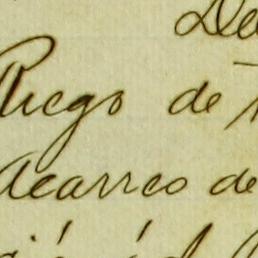 De
Riego de
Acarreo de